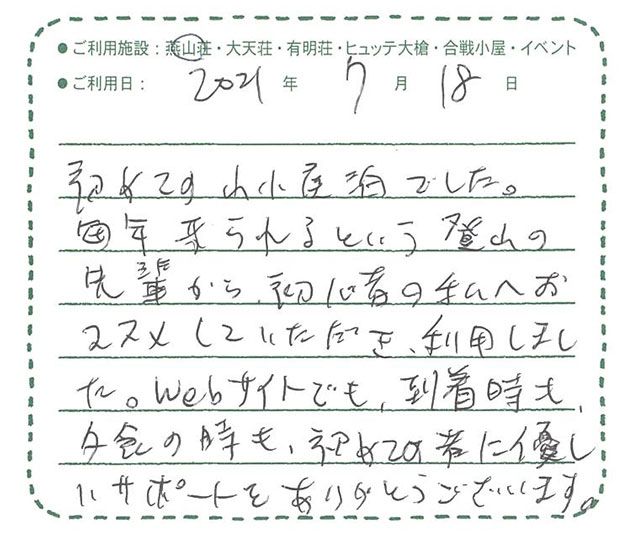 ●ご利用施設:燕山荘・大天荘・有明荘・ヒュッテ大槍・合戦小屋・イベント
●ご利用日: 2021年 7月 18日
初めての山小屋泊でした。
毎年来られるという登山の
先輩から、初心者の私へお
ススメしていただき、利用しまし
た。Webサイトでも、到着時も、
夕食の時も、初めての者に優し
いサポートをありがとうございます。